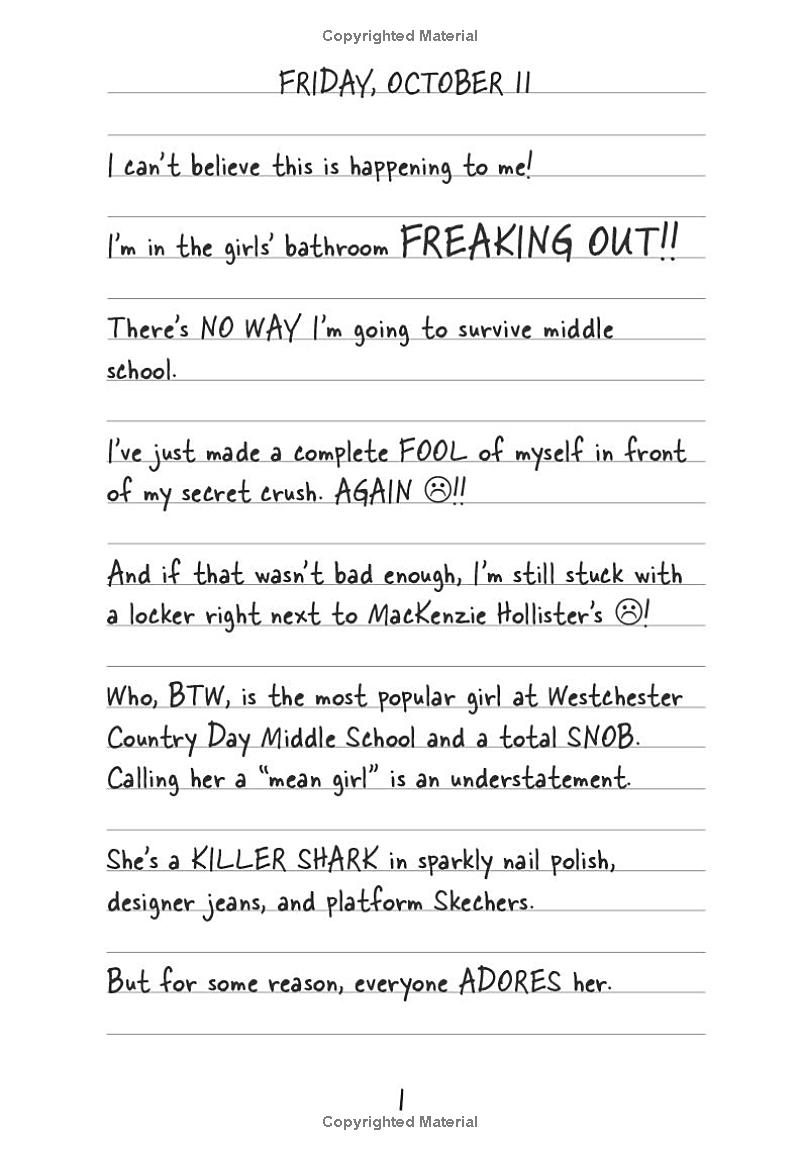 Copyrighted Material
FRIDAY, OCTOBER 11
I can't believe this is happening to me!
I'm in the girls' bathroom FREAKING OUT!!
There's NO WAY I'm going to survive middle
school.
I've just made a complete FOOL of myself in front
of my secret crush. AGAIN ☹!!
And if that wasn't bad enough, I'm still stuck with
a locker right next to MacKenzie Hollister's ☹!
Who, BTW, is the most popular girl at Westchester
Country Day Middle School and a total SNOB.
Calling her a “mean girl” is an understatement.
She's a KILLER SHARK in sparkly nail polish,
designer jeans, and platform Skechers.
But for some reason, everyone ADORES her.
1
Copyrighted Material